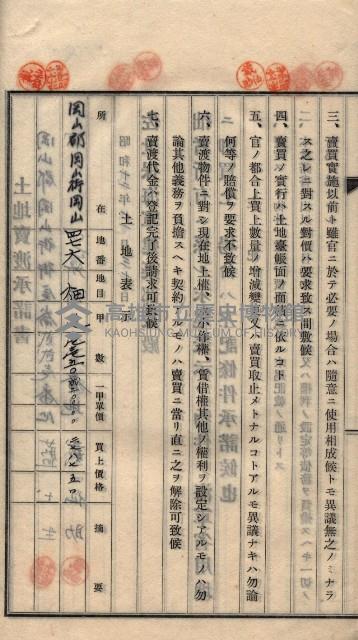 三、賣買實施以前ト雖官ニ於テ必要ノ場合ハ隨意ニ使用相成候トモ異議無之ノミナラ
ス之レニ對スル對價ハ要求致ス間敷候
四、賣買ノ實行ハ土地臺帳面ノ面積ニ依ルコト
五、官ノ都合上買上數量ノ增減變更又ハ賣買取止メトナルコトアルモ異議ナキハ勿論
何等ノ賠償ヲ要求不致候
六、賣渡物件ニ對シ現在地上權、永小作權、賃借權其他ノ權利ヲ設定シアルモノハ勿
論其他義務ヲ負擔スヘキ契約アルモノハ賣買ニ當リ直ニ之ヲ解除可致候
七、賣渡代金ハ登記完了後請求可致候
土地表示
所在 地番 地目 甲數 一甲單價 買上價格 摘要
岡山郡岡山街岡山 四七六 畑
高雄市立歷史博物館
KAOHSIUNG MUSEUM OF HISTORY